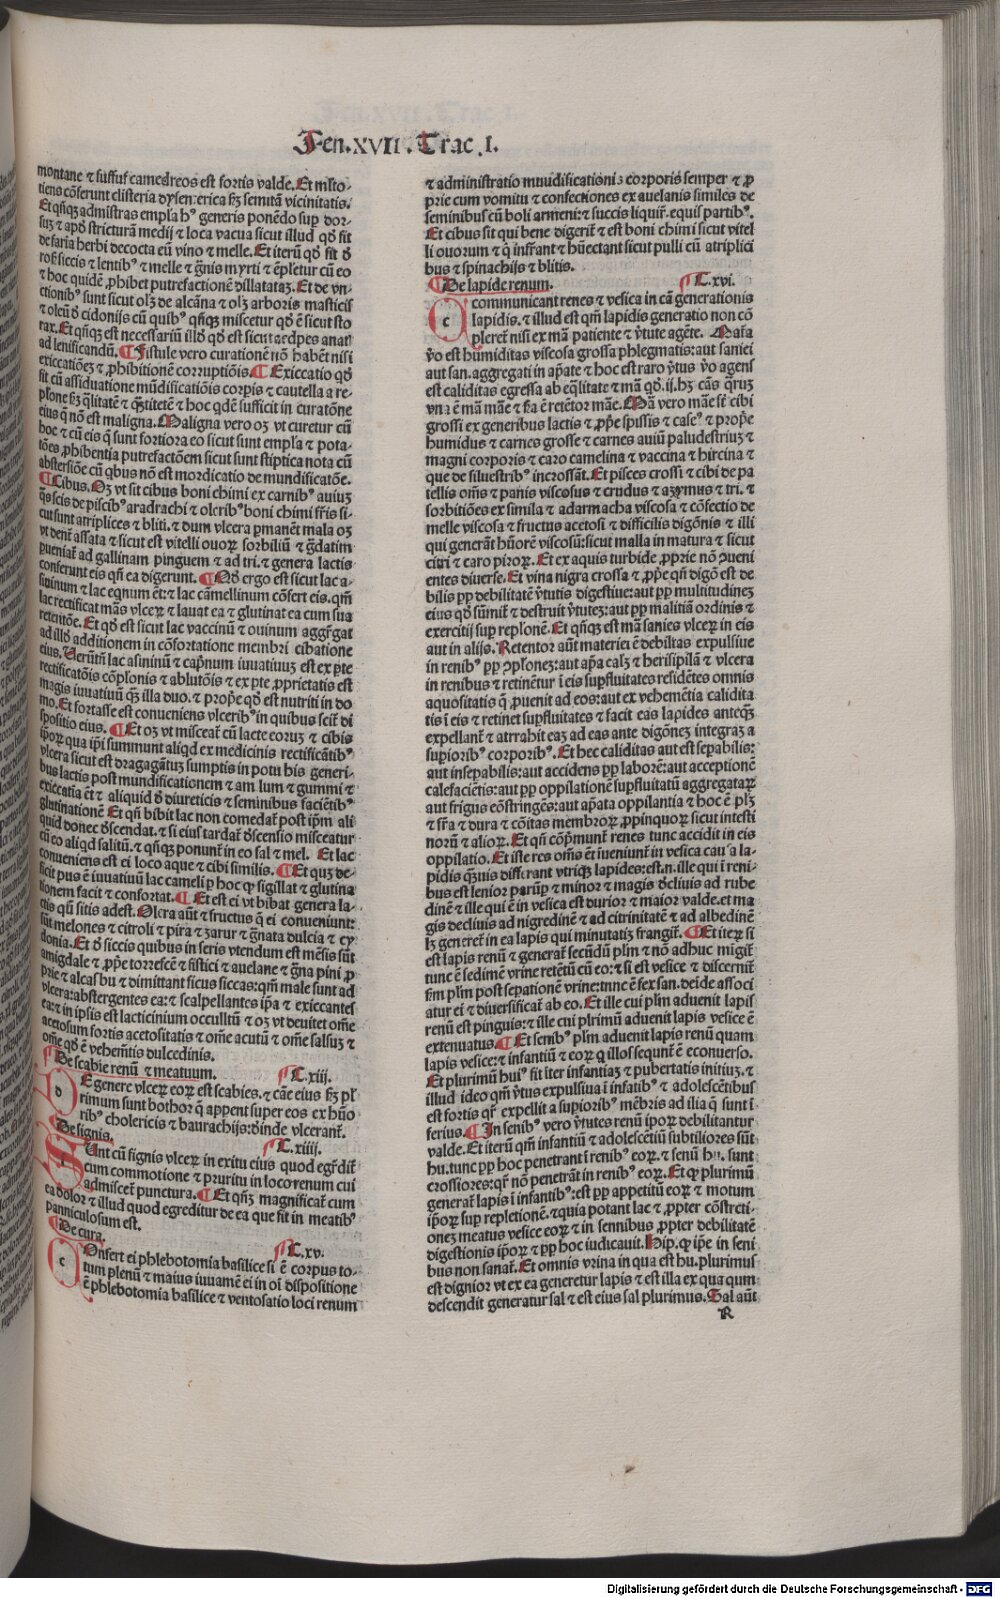 Fen.XVII. Trac.I.
montane ⁊ suffuf camedreos est fortis valde. Et mlto-
tiens cōferunt clisteria dysenterica fz semitā vicinitatis.
Et qñqz admistras empla hꝰ generis ponēdo sup dor-
suz ⁊ apō stricturā medij ⁊ loca vacua sicut illud qđ fit
de faria herbi decocta cū vino ⁊ melle. Et iterū qđ fit đ
rosis siccis ⁊ lentibꝰ ⁊ melle ⁊ gñis myrti ⁊ ēpletur cū eo
⁊ hoc quidē phibet putrefactionē dillatataz. Et de vn-
ctionibꝰ sunt sicut olz de alcāna ⁊ olz arboris masticis
⁊ oleū đ cidonijs cū quibꝰ qñqz miscetur qđ ē sicut sto
rax. Et qñqz est necessariū illđ qđ est sicut ardpes anat
ad lenificandū. ¶ Fistule vero curationē nō habēt nisi
exiccatiōez ⁊ phibitionē corruptiōis. ¶ Exiccatio qđ
fit cū assiduatione mūdificatiōis corpis ⁊ cautella a re-
plōne fz q̄litatē ⁊ q̄ntitatē ⁊ hoc qdē sufficit in curatōne
eius q̄ nō est maligna. Maligna vero oz vt curetur cū
hoc ⁊ cū eis q̄ sunt fortiora eo sicut sunt empla ⁊ pota-
tōes phibentia putrefactōem sicut sunt stiptica nota cū
abstersiōe cū qbus nō est mordicatio de mundificatōe.
¶ Cibus. Oz vt sit cibus boni chimi ex carnibꝰ auiuz
q̄s scis de piscibꝰ aradrachi ⁊ olerib' boni chimi ffis si-
cut sunt atriplices ⁊ bliti. ⁊ dum vlcera pmanēt mala oz
vt dent assata ⁊ sicut est vitelli ouoꝝ sorbiliū ⁊ gdatim
pueniat ad gallinam pinguem ⁊ ad tri. ⁊ genera lactis
conferunt eis qñ ea digerunt. ¶ Qđ ergo est sicut lac a-
sininum ⁊ lac eqnum ēt: ⁊ lac camellinum cōfert eis. qm
lac rectificat mās vlceꝝ ⁊ lauat ea ⁊ glutinat ea cum sua
retentōe. Et qđ est sicut lac vaccinū ⁊ ouinum aggregat
ad illđ additionem in cōfortatione membri cibatione
eius. Uerūtm lac asininū ⁊ capnum iuuatiuuz est ex pte
rectificatōis cōplonis ⁊ ablutōis ⁊ ex pte pprietatis est
magis iuuatiuū q̄z illa duo. ⁊ prope qđ est nutriti in do
mo. Et fortasse est conueniens vlceribꝰ in quibus scit di
spositio eius. ¶ Et oz vt misceat cū lacte eoruz ⁊ cibis
ipoꝝ qua ipi summunt aliqd ex medicinis rectificātibꝰ
vlcera sicut est dragagātuz sumptis in potu his generi-
bus lactis post mundificationem ⁊ am lum ⁊ gummi ⁊
exiccatia ēt ⁊ aliquid đ diureticis ⁊ seminibus faciētibꝰ
glutinationē Et qñ bibit lac non comedat post ipm ali
quid donec đscendat. ⁊ si eius tardat đscensio misceatur
cū eo aliqd salitū. ⁊ qñqz ponunt in eo sal ⁊ mel. Et lac
conueniens est ei loco aque ⁊ cibi similis. ¶ Et quz de-
ficit pus ē iuuatiuū lac cameli p hoc qꝫ sigillat ⁊ glutina
tionem facit ⁊ confortat. ¶ Et est ei vt bibat genera la-
ctis qñ sitis adest. Olera aūt ⁊ fructus q̄ ei conueniunt:
sūt melones ⁊ citroli ⁊ pira ⁊ zarur ⁊ gnata dulcia ⁊ cy
donia. Et đ siccis quibus in seris vtendum est melis sūt
amigdale ⁊ ppe torrescē ⁊ fistici ⁊ auelane ⁊ gña pini p
prie ⁊ alcasbu ⁊ dimittant ficus siccas: qm male sunt ad
vlcera: abstergentes ea: ⁊ scalpellantes ipa ⁊ exiccantes
ea: ⁊ in ipsis est lacticinium occultū ⁊ oz vt deuitet ome
acetosum fortis acetositatis ⁊ ome acutū ⁊ ome salsuz ⁊
ome qđ ē vehemētis dulcedinis.
De scabie renū ⁊ meatuum. ¶ C.xiij.
DE genere vlceꝝ eoꝝ est scabies. ⁊ cāe eius fz pl
rimum sunt bothor q̄ appent super eos ex hūo
ribꝰ cholericis ⁊ baurachijs: đinde vlcerant.
De signis. ¶ C.xiiij.
SUnt cū signis vlceꝝ in exitu eius quod egrđit
cum commotione ⁊ pruritu in loco renum cui
admiscet punctura. ¶ Et qñz magnificat cum
ea dolor ⁊ illud quod egreditur de ea que fit in meatibꝰ
panniculosum est.
De cura. ¶ C.xv.
COnfert ei phlebotomia basilice si ē corpus to-
tum plenū ⁊ maius iuuamē ei in oi dispositione
ē phlebotomia basilice ⁊ ventosatio loci renum
⁊ administratio mundificationis corporis semper ⁊ p
prie cum vomitu ⁊ confectiones ex auelanis similes de
seminibus cū boli armeni: ⁊ succis liquir. equis partibꝰ.
Et cibus sit qui bene digerit ⁊ est boni chimi sicut vitel
li ouorum ⁊ q̄ infrāt ⁊ hūectant sicut pulli cū atriplici
bus ⁊ spinachijs ⁊ blitis.
¶ De lapide renum. ¶ C.xvi.
COmmunicant renes ⁊ vesica in cā generationis
lapidis. ⁊ illud est qm lapidis generatio non cō
pleret nisi ex mā patiente ⁊ v̄tute agēte. Mafa
v̄o est humiditas viscosa grossa phlegmatis: aut saniei
aut san. aggregati in apate ⁊ hoc est raro v̄tus v̄o agens
est caliditas egressa ab eqlitate ⁊ mā qđ. ij. hz cās q̄ruz
vna ē mā māe ⁊ fia ē retētor māe. Mā vero māe st cibi
grossi ex generibus lactis ⁊ ppe spissis ⁊ caseꝰ ⁊ prope
humidus ⁊ carnes grosse ⁊ carnes auiū paludestriuz ⁊
magni corporis ⁊ caro camelina ⁊ vaccina ⁊ hircina ⁊
que de siluestribꝰ incrossāt. Et pisces crossi ⁊ cibi de pa
tellis oms ⁊ panis viscosus ⁊ crudus ⁊ azymus ⁊ tri. ⁊
sorbitiōes ex simila ⁊ adarmacha viscosa ⁊ cōfectio de
melle viscosa ⁊ fructus acetosi ⁊ difficilis digōnis ⁊ illi
qui generāt hūorē viscosū: sicut malla in matura ⁊ sicut
citri ⁊ caro piroꝝ. Et ex aquis turbide pprie nō ꝯueni
entes diuerse. Et vina nigra crossa ⁊ ppe qñ digō est de
bilis pp debilitatē v̄tutis digestiue: aut pp multitudinez
eius qđ sūmit ⁊ destruit v̄tutez: aut pp malitiā ordinis ⁊
exercitij sup replonē. Et qñqz est mā sanies vlceꝝ in eis
aut in alijs. Retentor aūt materiei ē debilitas expulsiue
in renibꝰ pp ꝯplonez: aut apā calz ⁊ herisipilā ⁊ vlcera
in renibus ⁊ retinētur i eis supfluitates residētes omnis
aquositatis q̄ puenit ad eos: aut ex vehemētia calidita
tis i eis ⁊ retinet supfluitates ⁊ facit eas lapides anteqz
expellant ⁊ attrahit eaz ad eas ante digōnez integraz a
supioribꝰ corporibꝰ. Et hec caliditas aut est sepabilis:
aut insepabilis: aut accidens pp laborē: aut acceptionē
calefaciētis: aut pp oppilationē supfluitatū aggregataꝝ
aut frigus cōstringēs: aut apata oppilantia ⁊ hoc ē plz
⁊ fra ⁊ dura ⁊ cōitas membroꝝ ppinquoꝝ sicut intesti
norū ⁊ alioꝝ. Et qñ cōpmunt renes tunc accidit in eis
oppilatio. Et iste res oms ēt iueniunt in vesica cau'a la-
pidis q̄uis differant vtriqz lapides: est. n. ille qui i reni-
bus est lenior parūp ⁊ minor ⁊ magis đcliuis ad rube
dinē ⁊ ille qui ē in vesica est durior ⁊ maior valde. et ma
gis decliuis ad nigredinē ⁊ ad citrinitatē ⁊ ad albedinē
lz generet in ea lapis qui minutatiz frangit. ¶ Et iteꝝ si
est lapis renū ⁊ generat secūdū plm ⁊ nō adhuc migit
tunc ē sedimē vrine retētū cū eo: ⁊ si est vesice ⁊ discernit
fm plm post sepationē vrine: tunc ē fex san. deide associ
atur ei ⁊ diuersificat ab eo. Et ille cui plm aduenit lapis
renū est pinguis: ⁊ ille cui plrimū aduenit lapis vesice ē
extenuatus. ¶ Et senibꝰ plm aduenit lapis renū quam
lapis vesice: ⁊ infantiū ⁊ eoꝝ q illos sequnt ē econuerso.
Et plurimū huiꝰ fit iter infantiaz ⁊ pubertatis initiuz. ⁊
illud ideo qm v̄tus expulsiua i infātibꝰ ⁊ adolescētibus
est fortis qr expellit a supioribꝰ mēbris ad ilia q̄ sunt i
ferius. ¶ In senibꝰ vero v̄tutes renū ipoꝝ debilitantur
valde. Et iterū qm infantiū ⁊ adolescētiū subtiliores sūt
hu. tunc pp hoc penetrant i renibꝰ eoꝝ. ⁊ senū hu. sunt
crossiores: qr nō penetrāt in renibꝰ eoꝝ. Et qꝫ plurimū
generat lapis i infantibꝰ: est pp appetitū eoꝝ ⁊ motum
ipoꝝ sup repletionē. ⁊ quia potant lac ⁊ ppter cōstricti-
onez meatus vesice eoꝝ ⁊ in senibus ppter debilitatē
digestionis ipoꝝ ⁊ pp hoc iudicauit. Hip. qꝫ ipe in seni
bus non sanat. Et omnis vrina in qua est hu. plurimus
est dignior vt ex ea generetur lapis ⁊ est illa ex qua qum
descendit generatur sal ⁊ est eius sal plurimus. Sal aūt
R
Digitalisierung gefördert durch die Deutsche Forschungsgemeinschaft - DFG